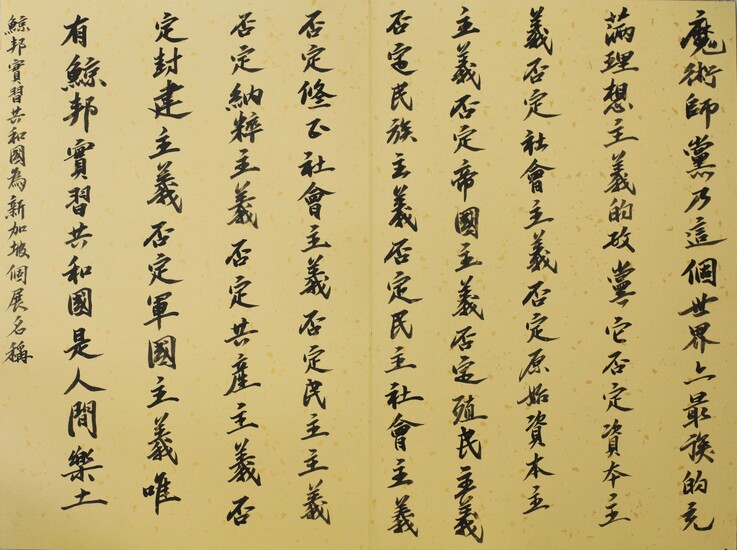 魔術師黨乃這個世界上最後的充
滿理想主義的政黨它否定資本主
義否定社會主義否定原始資本主
主義否定帝國主義否定殖民主義
否定民族主義否定民主社會主義
否定修正社會主義否定民主主義
否定納粹主義否定共產主義否
定封建主義否定軍國主義唯
有鯨邦實習共和國是人間樂土
鯨邦實習共和國為新加坡個展名稱